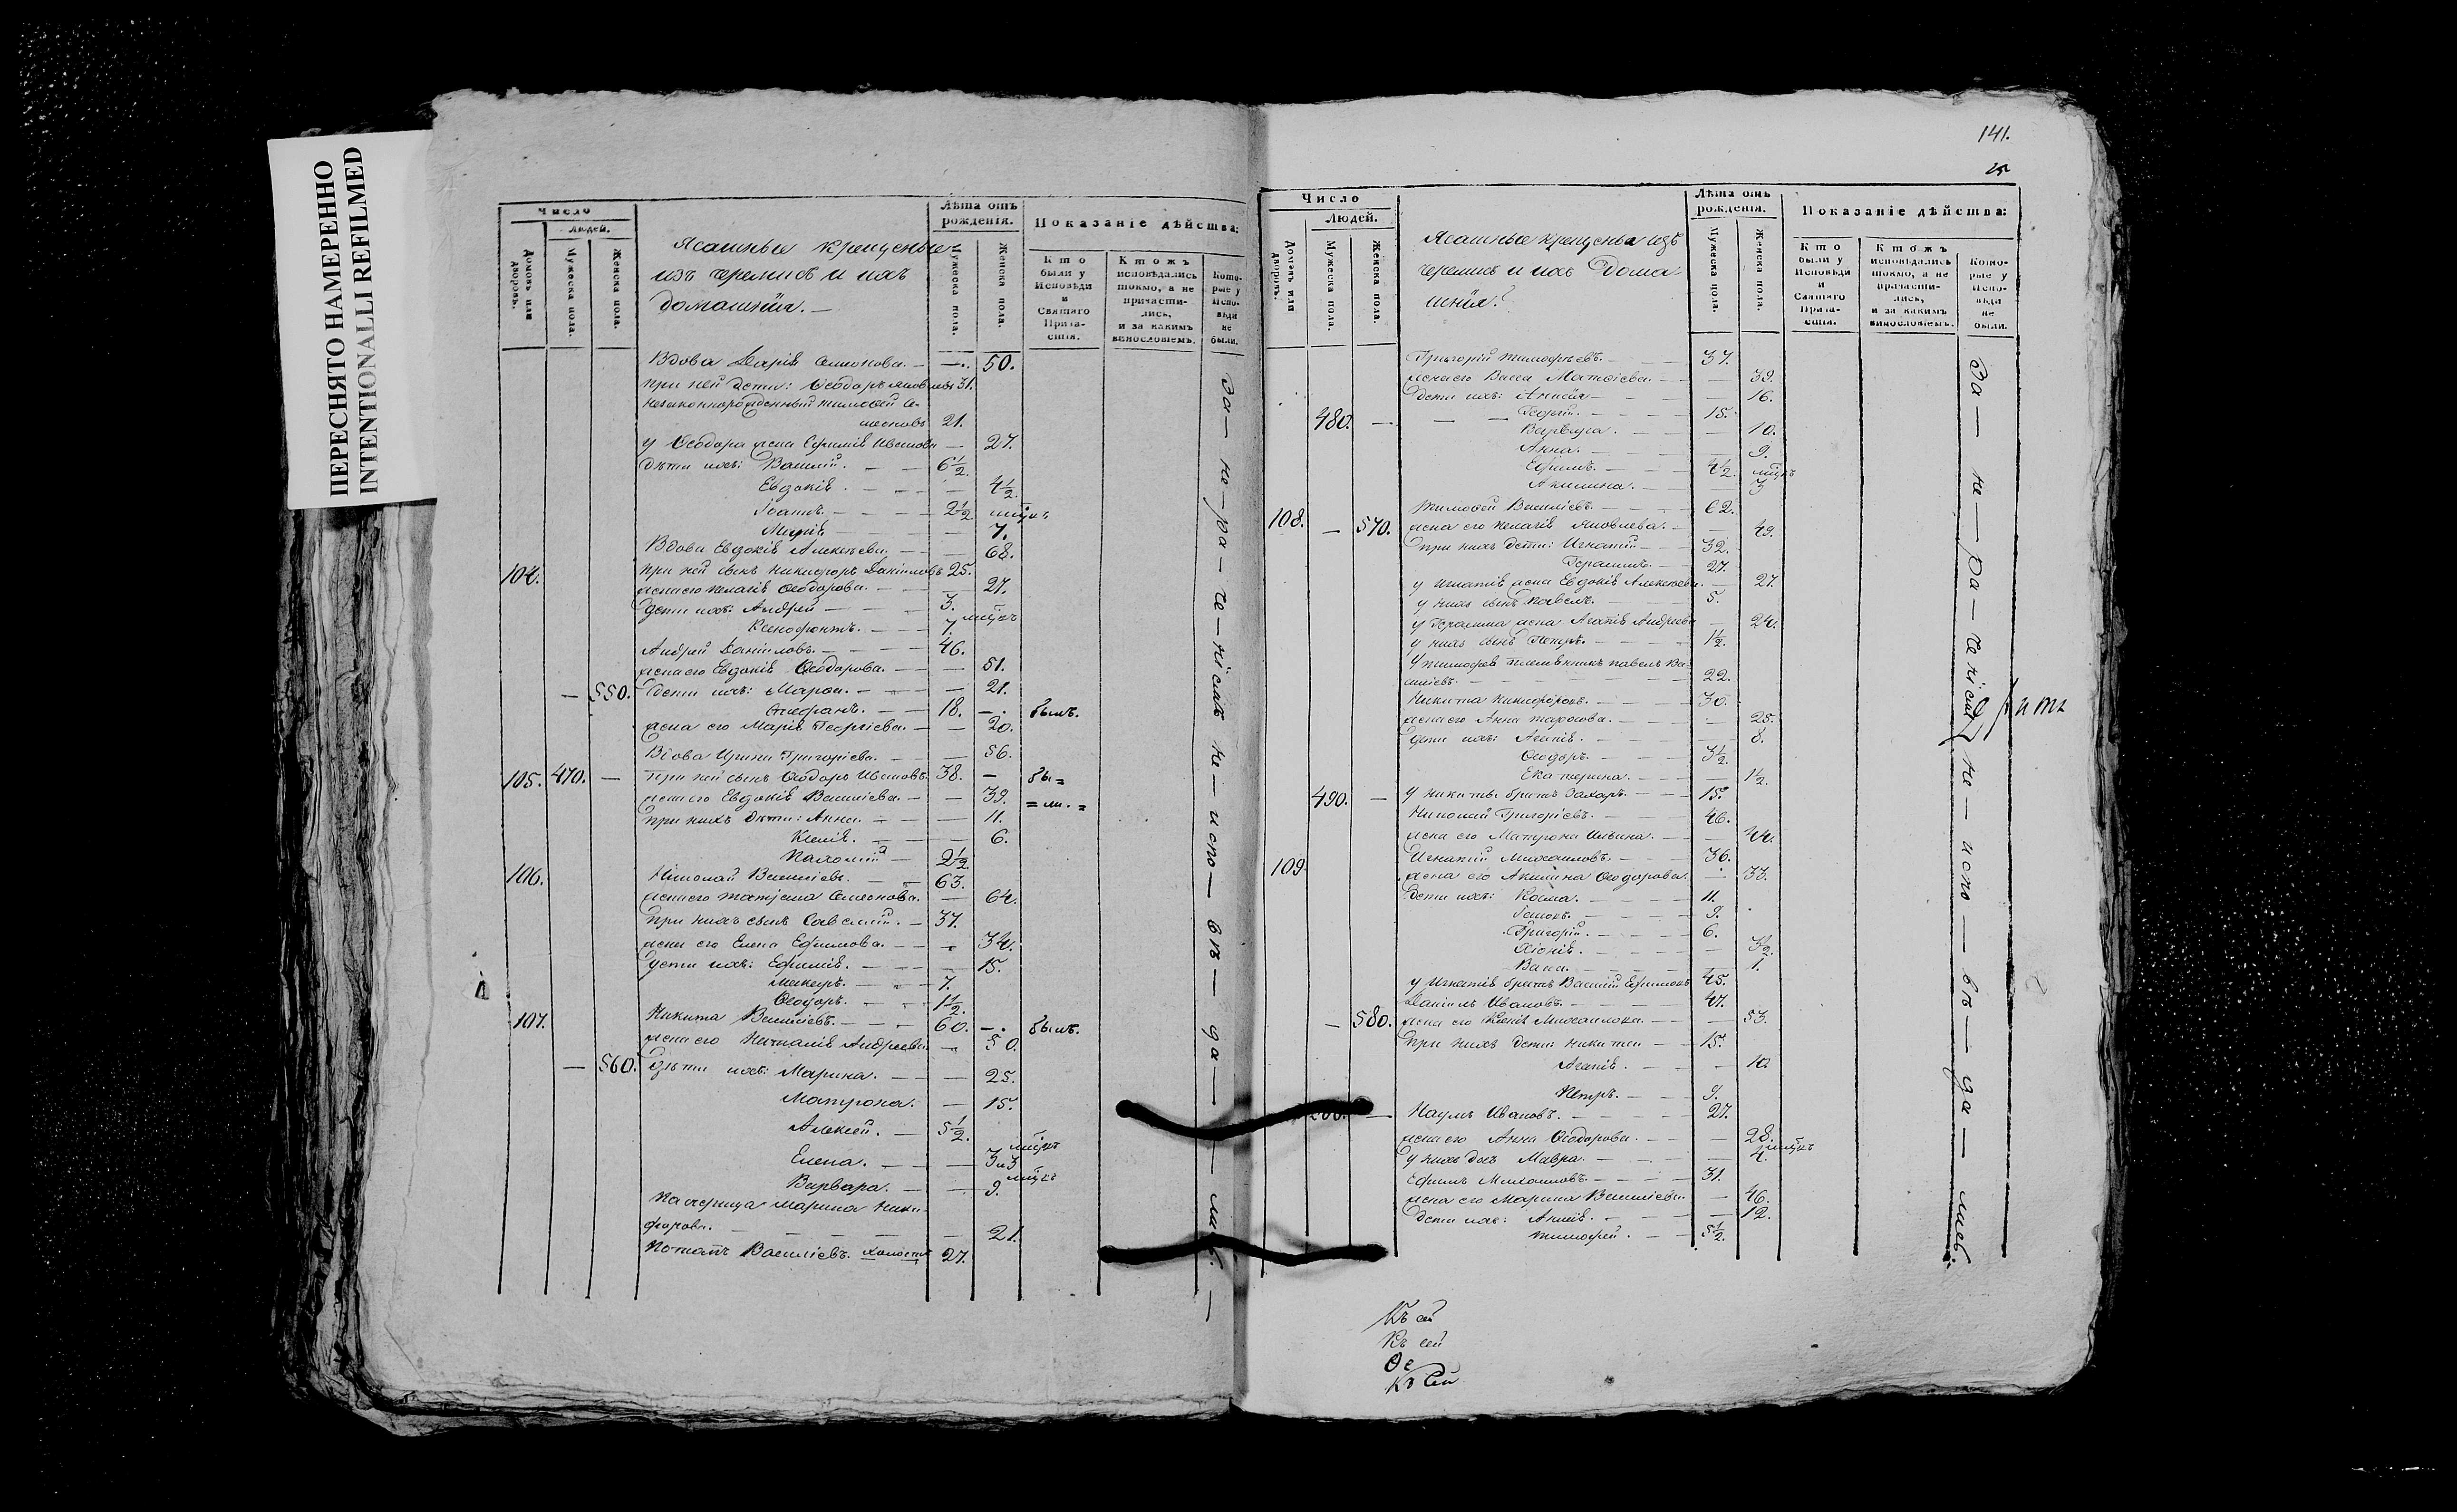 ПЕРЕСНЯТО НАМЕРЕННО
INTENTIONALLI REFILMED
Число
Людей.
Домовъ или дворовъ.
Мужеска пола.
Женска пола.
Ясашные крещеные
изъ черемисъ и ихъ
домашнія. —
Лѣта отъ рожденія.
Мужеска пола.
Женска пола.
Показаніе дѣйства:
Кто были у Исповѣди и Святаго Прича-стія.
Ктожъ исповѣдались токмо, а не причасти-лись, и за какимъ винословіемъ.
Кото-рые у Испо-вѣди не были.
Вдова Дарія Симонова. — —. 50.
при ней дети: Ѳеодоръ Яковлевъ 31.
незаконнорожденный Тимоѳей Се-
меновъ 21.
у Ѳеодора жена Евфимія Иванова — 27.
дѣти ихъ: Василій. — — 6½.
Евдокія. — — — 4½.
Іоаннъ. — — — 2½ мѣсяцъ
Марія — — — 7.
Вдова Евдокія Алексѣева. — — 68.
104. при ней сынъ Никифоръ Даніиловъ 25.
жена его Пелагія Ѳеодорова. — — 27.
дети ихъ: Андрей — — — 3. мѣсяцъ
Ксенофонтъ. — — 7.
Андрей Даніиловъ. — — — 46.
жена его Евдокія Ѳеодорова. — — 51.
— 550. дети ихъ: Марѳа. — — — 21.
Стефанъ. — — 18. —. былъ.
жена его Марія Георгіева. — — 20.
Вдова Ирина Григоріева. — — 56.
105. 470. — При ней сынъ Ѳеодоръ Ивановъ 38. — бы=
жена его Евдокія Васильева. — — 39. =ли.=
при нихъ дѣти: Анна. — — 11.
Ксенія. — — — 6.
Пахомій — 2½
106. Николай Васильевъ. — — 63.
жена его Татіана Семенова. — 64.
при нихъ сынъ Савелій. — 37.
жена его Елена Ефимова. — — 34.
дети ихъ: Ефимія. — — — 15.
Макаръ. — — 7.
Ѳеодоръ. — — 1½.
107. Никита Васильевъ. — — 60. —. былъ.
жена его Наталія Андреева — 50.
— 560. дѣти ихъ: Марина. — — — 25.
Матрона. — 15.
Алексей. — 5½.
Елена. — — — 3 и 3 мѣсяцъ
Варвара. — — 9. мѣсяцъ
Падчерица Марина Ники-
форова. — — — — 21.
Потапъ Васильевъ. холостъ 27.
За — не — ра — че — ніемъ не — испо — вѣ — да — — лись. —
141.
25
Число
Людей.
Домовъ или дворовъ.
Мужеска пола.
Женска пола.
Ясашные крещеные изъ
черемисъ и ихъ дома
шнія.
Лѣта отъ рожденія.
Мужеска пола.
Женска пола.
Показаніе дѣйства:
Кто были у Исповѣди и Святаго Прича-стія.
Ктожъ исповѣдались токмо, а не причасти-лись, и за какимъ винословіемъ.
Кото-рые у Испо-вѣди не были.
Григорій Тимофѣевъ. — — 37.
жена его Васса Матѳіева. — — 39.
дети ихъ: Анисія — — — 16.
480. — — Георгій. — — — 15.
Варвара. — — — 10.
Анна. — — — 9.
Ефимъ. — — — 4½. мѣсяцъ
Акилина. — — — 3
Тимоѳей Васильевъ. — — — 62.
108. — 570. жена его Пелагія Яковлева. — — 49.
при нихъ дети: Игнатій — — 32.
Герасимъ. — — 27.
у Игнатія жена Евдокія Алексеева. — 27.
у нихъ сынъ Павелъ. — — 5.
у Герасима жена Агапія Андреева — 24.
у нихъ сынъ Петръ. — — — 1½.
у Тимофея племянникъ Павелъ Ва-
сильевъ. — — — — 22.
Никита Никифоровъ. — — 30.
жена его Анна Тарасова. — — — 25.
дети ихъ: Агапія. — — — 8.
Ѳеодоръ. — — — 3½.
Екатерина. — — — 1½.
490. — у Никиты братъ Захаръ. — — 15.
Николай Григоріевъ. — — — 46.
жена его Матрона Ильина. — — 44.
Игнатій Михаиловъ. — — — 36.
109. жена его Акилина Ѳеодорова. — — 33.
дети ихъ: Косма. — — — 11.
— — — 9.
Григорій. — — — 6.
Хіонія. — — — 3½.
Васса. — — — 1.
у Игнатія братъ Василій Ефимовъ 45.
Даніилъ Ивановъ. — — — 47.
— 580. жена его Ксенія Михаилова. — — 53.
при нихъ дети: Никита — — 15.
Агапія. — — — 10.
Петръ. — — 9.
— Наумъ Ивановъ. — — — — 27.
жена его Анна Ѳеодорова. — — 28.
у нихъ дочь Мавра. — — — 4. мѣсяцъ
Ефимъ Михаиловъ. — — — 31.
жена его Марина Васильева. — 46.
дети ихъ: — — — 12.
Тимоѳей. — — 5½.
За — не — ра — че — ніемъ не — испо — вѣ — да — лись.
Къ сей
Къ сей
Ѳе
Къ сей